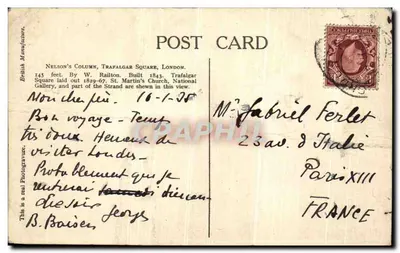 POST CARD
British Manufacture.
NELSON'S COLUMN, TRAFALGAR SQUARE, LONDON.
145 feet. By W. Railton. Built 1843. Trafalgar
Square laid out 1829-67. St. Martin's Church, National
Gallery, and part of the Strand are shown in this view.
This is a real Photogravure.
Mon cher 16-1-38
Bon voyage - Temps
très doux. Heureux de
visiter Londres -
Probablement que je
rentrerai
Georges
B. Baisers
Mr Gabriel Ferlet
23 av. d'Italie
Paris XIII
FRANCE
CARTE